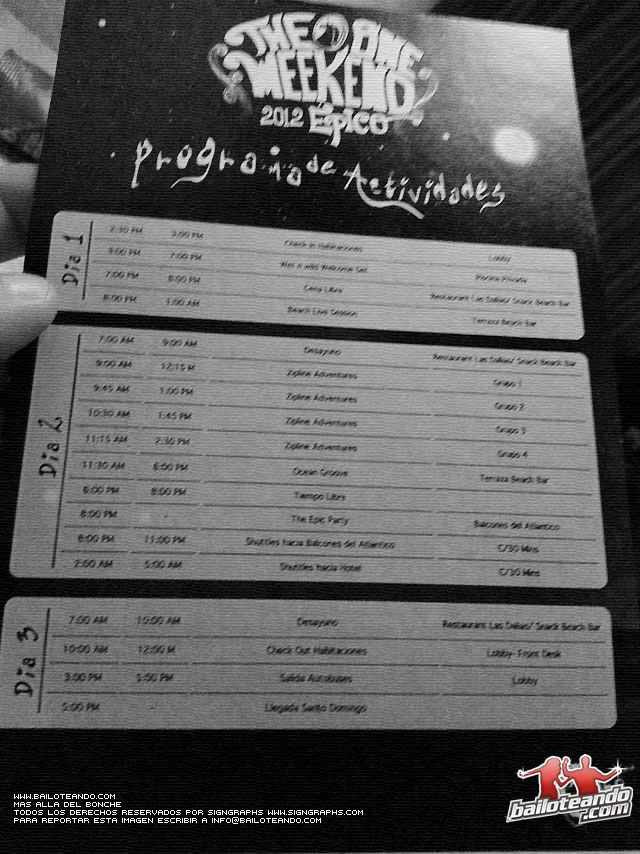 THE ONE
WEEKEND
2012 Épico
Programa de Actividades
Día 1
2:30 PM 3:00 PM Check in Habitaciones Lobby
3:00 PM 7:00 PM Wet n wild Welcome Set Piscina Privada
7:00 PM 8:00 PM Cena Libre Restaurant Las Dalias/ Snack Beach Bar
8:00 PM 1:00 AM Beach Live Session Terraza Beach Bar
Día 2
7:00 AM 9:00 AM Desayuno Restaurant Las Dalias/ Snack Beach Bar
9:00 AM 12:15 M Zipline Adventures Grupo 1
9:45 AM 1:00 PM Zipline Adventures Grupo 2
10:30 AM 1:45 PM Zipline Adventures Grupo 3
11:15 AM 2:30 PM Zipline Adventures Grupo 4
11:30 AM 6:00 PM Ocean Groove Terraza Beach Bar
6:00 PM 8:00 PM Tiempo Libre
8:00 PM - The Epic Party Balcones del Atlantico
8:00 PM 11:00 PM Shuttles hacia Balcones del Atlantico C/30 Mins
2:00 AM 5:00 AM Shuttles hacia Hotel C/30 Mins
Día 3
7:00 AM 10:00 AM Desayuno Restaurant Las Dalias/ Snack Beach Bar
10:00 AM 12:00 M Check Out Habitaciones Lobby- Front Desk
3:00 PM 5:00 PM Salida Autobuses Lobby
5:00 PM - Llegada Santo Domingo
WWW.BAILOTEANDO.COM
MAS ALLA DEL BONCHE
TODOS LOS DERECHOS RESERVADOS POR SIGNGRAPHS WWW.SIGNGRAPHS.COM
PARA REPORTAR ESTA IMAGEN ESCRIBIR A INFO@BAILOTEANDO.COM
bailoteando
.com